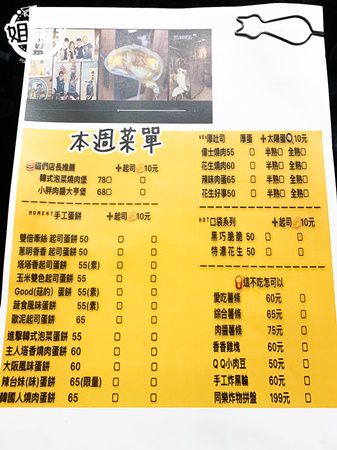 姐
本週菜單
貓們店長推薦 +起司10元
韓式泡菜燒肉堡 78□ □
小胖肉醬大亨堡 68□ □
MOMENT手工蛋餅 +起司10元
雙倍牽絲 起司蛋餅 50 □ □
蔥明香香 起司蛋餅 50 □ □
塔塔香起司蛋餅 55(素) □
玉米雙色起司蛋餅 55 □ □
Good(菇的) 蛋餅 55(素) □
蔬食風味蛋餅 55(素) □
歐泥起司蛋餅 65 □ □
進擊韓式泡菜蛋餅 55 □ □
主人塔香燒肉蛋餅 60 □ □
大阪風味蛋餅 60 □ □
辣台妹(味)蛋餅 65(限量) □
韓國人燒肉蛋餅 65 □ □
厚吐司 厚蛋 +太陽蛋10元
偉士燒肉55 □ 半熟□ 全熟□
花生燒肉60 □ 半熟□ 全熟□
辣妹肉蛋65 □ 半熟□ 全熟□
花生好事50 □ 半熟□ 全熟□
HOT口袋系列 +起司10元
黑巧脆脆 50 □ □
特濃花生 50 □ □
這不吃怎可以
愛吃薯條 60元 □
綜合薯條 65元 □
肉醬薯條 75元 □
香香雞塊 60元 □
QQ小肉豆 50元 □
手工炸黑輪 60元 □
同樂炸物拼盤 199元 □